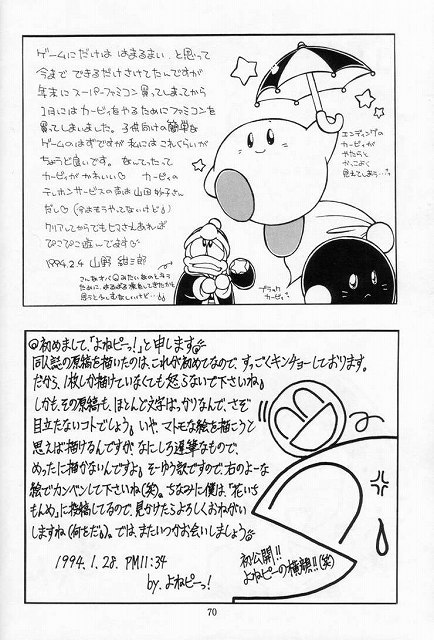 ゲームにだけは はまるまい、と思って
今まで できるだけさけてたんですが
年末に スーパーファミコン 買ってしまってから
1月には カービィをやるためにファミコンを
買ってしまいました。子供向けの簡単な
ゲームのはずですが 私には これくらいが
ちょうど良いです。なんてったって
カービィが かわいい♡ カービィの
テレホンサービスの声は 山田妙子さん
だし♡(今はもうやってないけど
クリアしてからでも ヒマさえあれば
ぴこぴこ遊んでます♡
1994.2.4 山野 紺三郎
エンディングの
カービィが
やたらと
かっこよく
見えてしまう…。
ブラック
カービィ。
◎初めまして、「よねピーっ!」と申します
同人誌の原稿を描いたのは、これが初めてなので、すっごくキンチョーしております。
だから、1枚しか描けていなくても怒らないで下さいね
しかも、その原稿も、ほとんど文字ばっかりなんで、さぞ
目立たないコトでしょう。いや、マトモな絵を描こうと
思えば描けるんですが、なにしろ遅筆なもので、
めったに描かないんですよ。そーゆう訳ですので、右のよーな
絵でカンベンして下さいね(笑)。ちなみに僕は、「花いち
もんめ」に投稿してるので、見かけたらよろしくおねがい
しますね(何をだ)。では、またいつかお会いしましょう
1994.1.28. PM11:34
by. よねピーっ!
初公開!!
よねピーの横顔!!(笑)
70